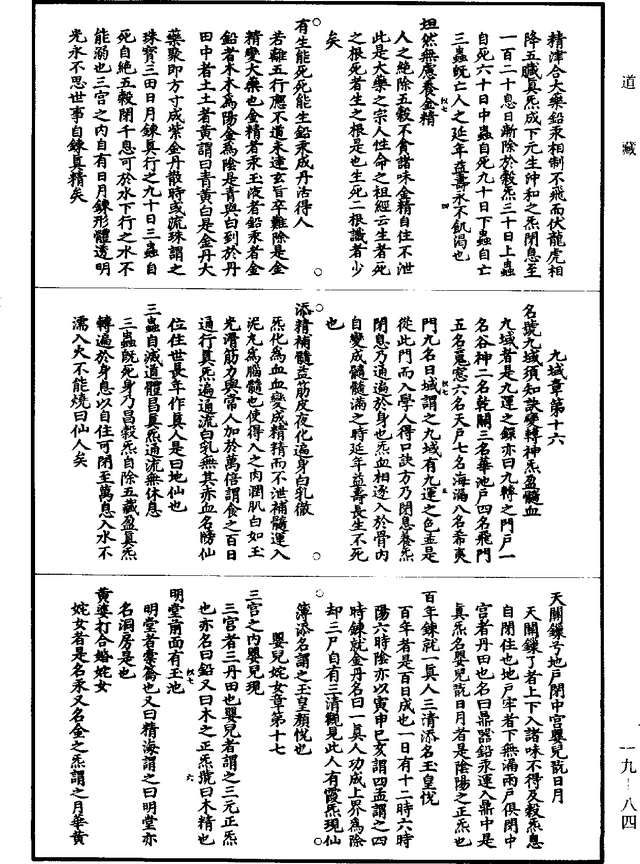 道藏
精津合大藥鉛汞相制不飛而伏龍虎相
降五臟真炁成下元生沖和之炁閉息至
一百二十息日漸除於穀炁三十日上蟲
自死六十日中蟲自死九十日下蟲自亡
三蟲旣亡人之延年益壽永不飢渴也
坦然無慮養金精
人之絶除五穀不食諸味金精自住不泄
此是大藥之宗人性命之祖經云生者死
之根死者生之根是也生死二根識者少
矣
有生能死死能生鉛汞成丹活得人
若離五行應不道未達玄旨卒難除是金
精變大藥也金精者汞玉液者鉛汞者金
鉛者木木爲陽金爲陰是青與白到於丹
田中者土土者黃謂曰青黃白是金丹大
藥聚即方寸成紫金丹散時或流珠謂之
珠寳三田日月鍊真行之九十日三蟲自
死自絶五穀閉千息可於水下行之水不
能溺也三宫之内自有日月鍊形體透明
光永不思世事自鍊真精矣
九域章第十六
名號九域須知訣變轉神炁盈髓血
九域者是九運之鎖亦曰九轉之門戸一
名谷神二名乾關三名華池戸四名飛門
五名窻六名天戸七名海漏八名希夷
門九名曰城謂之九域有九運之色盂是
從此門而入學人得口訣方乃閉息養炁
閉息乃通遍於身也炁血相逐入於骨内
自變成髓髓滿之時延年益壽長生不死
也
添精補髓益筋皮夜化遍身白乳徹
炁化爲血血變成精精而不泄補髓運入
泥丸爲腦髓也使得人之肉潤肌白如玉
光滑筋力與常人加於萬倍謂食之百日
通行真炁遍通流白乳無其赤血名勝仙
位住世長年作真人是曰地仙也
三蟲自滅道體昌真炁通流無休息
三蟲旣死身乃昌穀炁自除五藏盈真炁
轉遍於身息以自住可閉至萬息入水不
濡入火不能燒曰仙人矣
天關鏁兮地戸閉中宫嬰兒翫日月
天關鏁了者上下入諸味不得及穀炁息
自閉住也地戸牢者下無漏兩戸俱閉中
宫者丹田也名曰鼎器鉛汞運入鼎中是
真炁名嬰兒翫日月者是陰陽之正炁也
百年鍊就一真人三清添名玉皇悦
百年者是百日成也一日有十二時六時
陽六時陰亦以寅申巳亥謂四孟謂之四
時鍊就金丹名曰一真人功成上界爲除
却三尸自有三清觀見此人有霞炁現仙
簿添名謂之玉皇顏悦也
嬰兒姹女章第十七
三宫之内嬰兒現
三宫者三丹田也嬰兒者謂之三元正炁
也亦名曰鉛又曰木之正炁號曰木精也
明堂前面有玉池
明堂者橐籥也又曰精海謂之曰明堂亦
名洞房是也
黃婆打合婚姹女
姹女者是名汞又名金之炁謂之月華黃
一九—八四